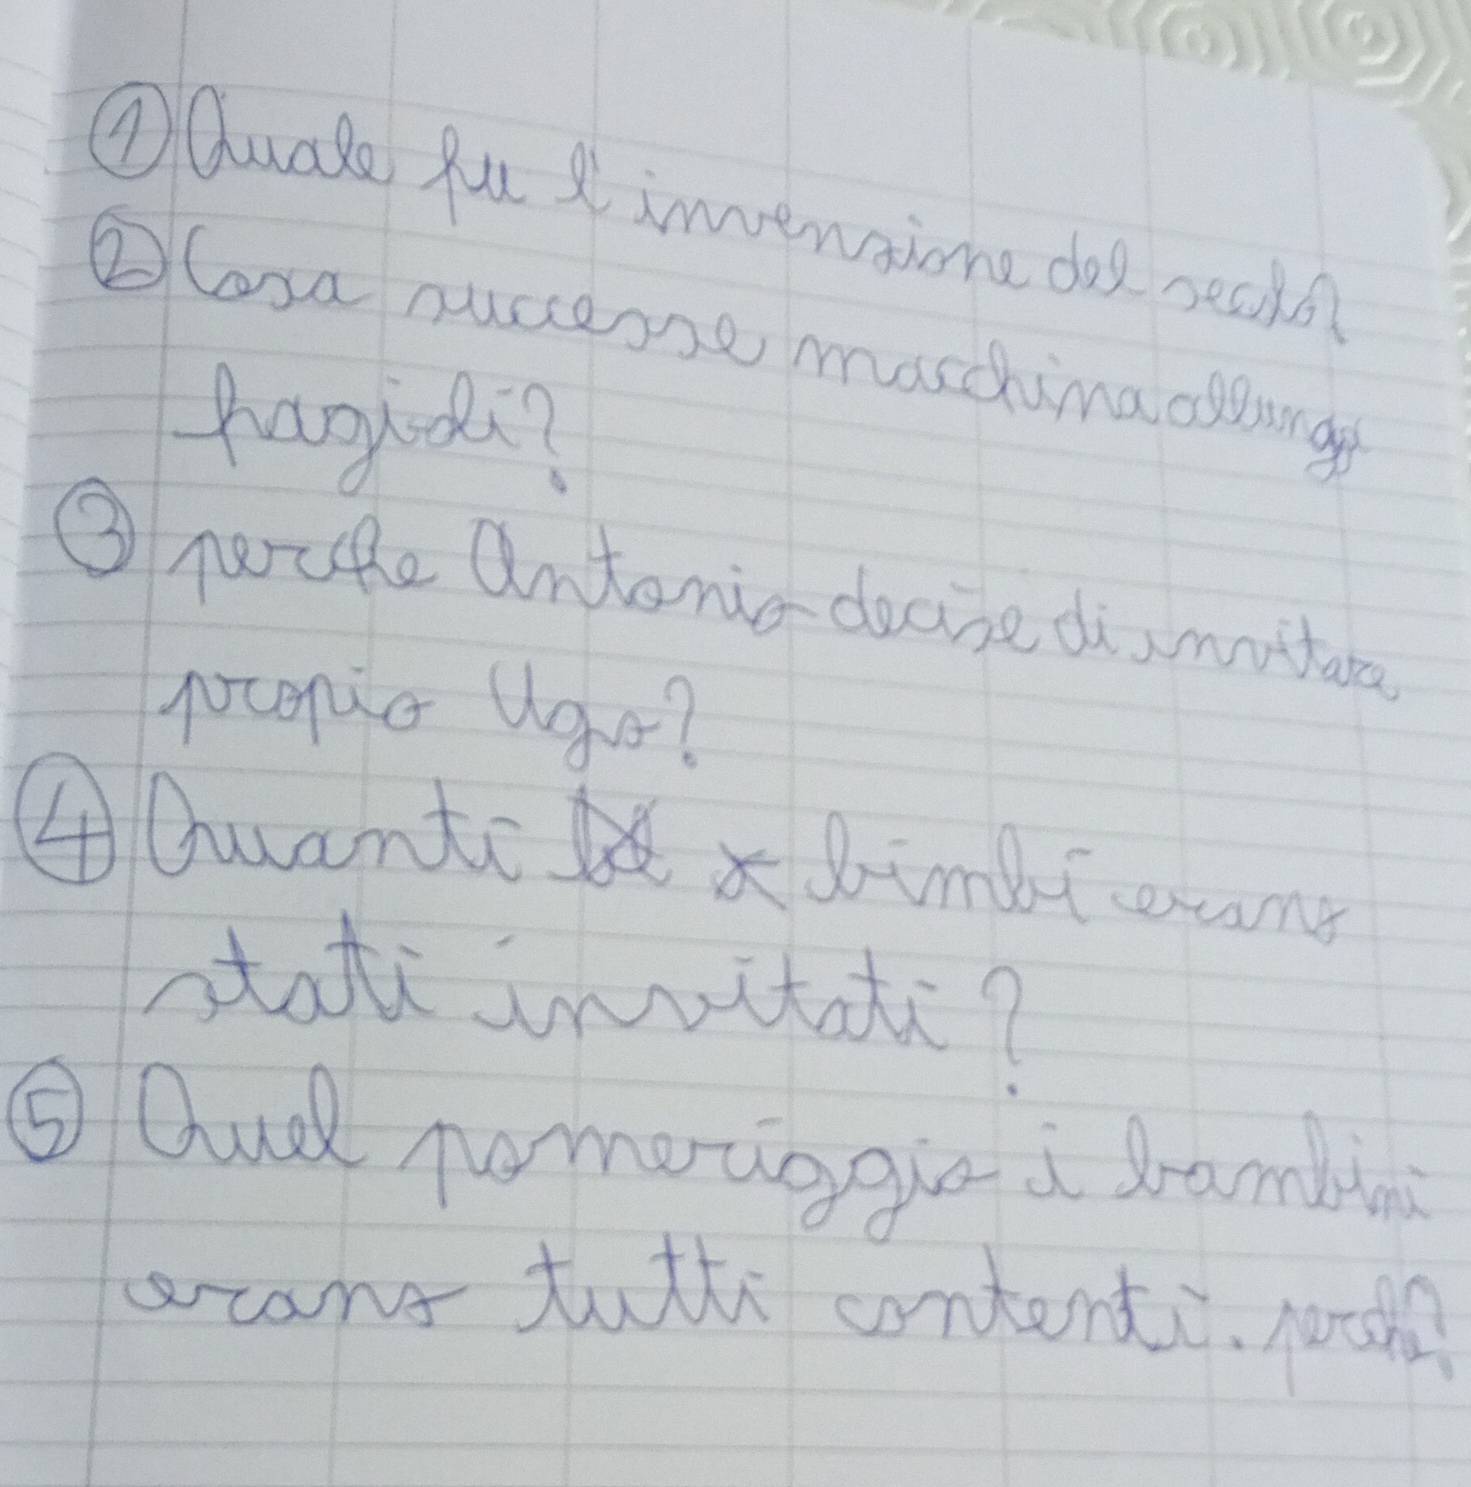 ① Quale fu l'invenzione del secolo?
② Cosa successe macchina allunga
fragidi?
③ perche Antonio decise di invitare
propio Ugo?
④ Quanti x bimbi erano
stati invitati?
⑤ Quel pomeriggio i bambini
erano tutti contenti. perche?